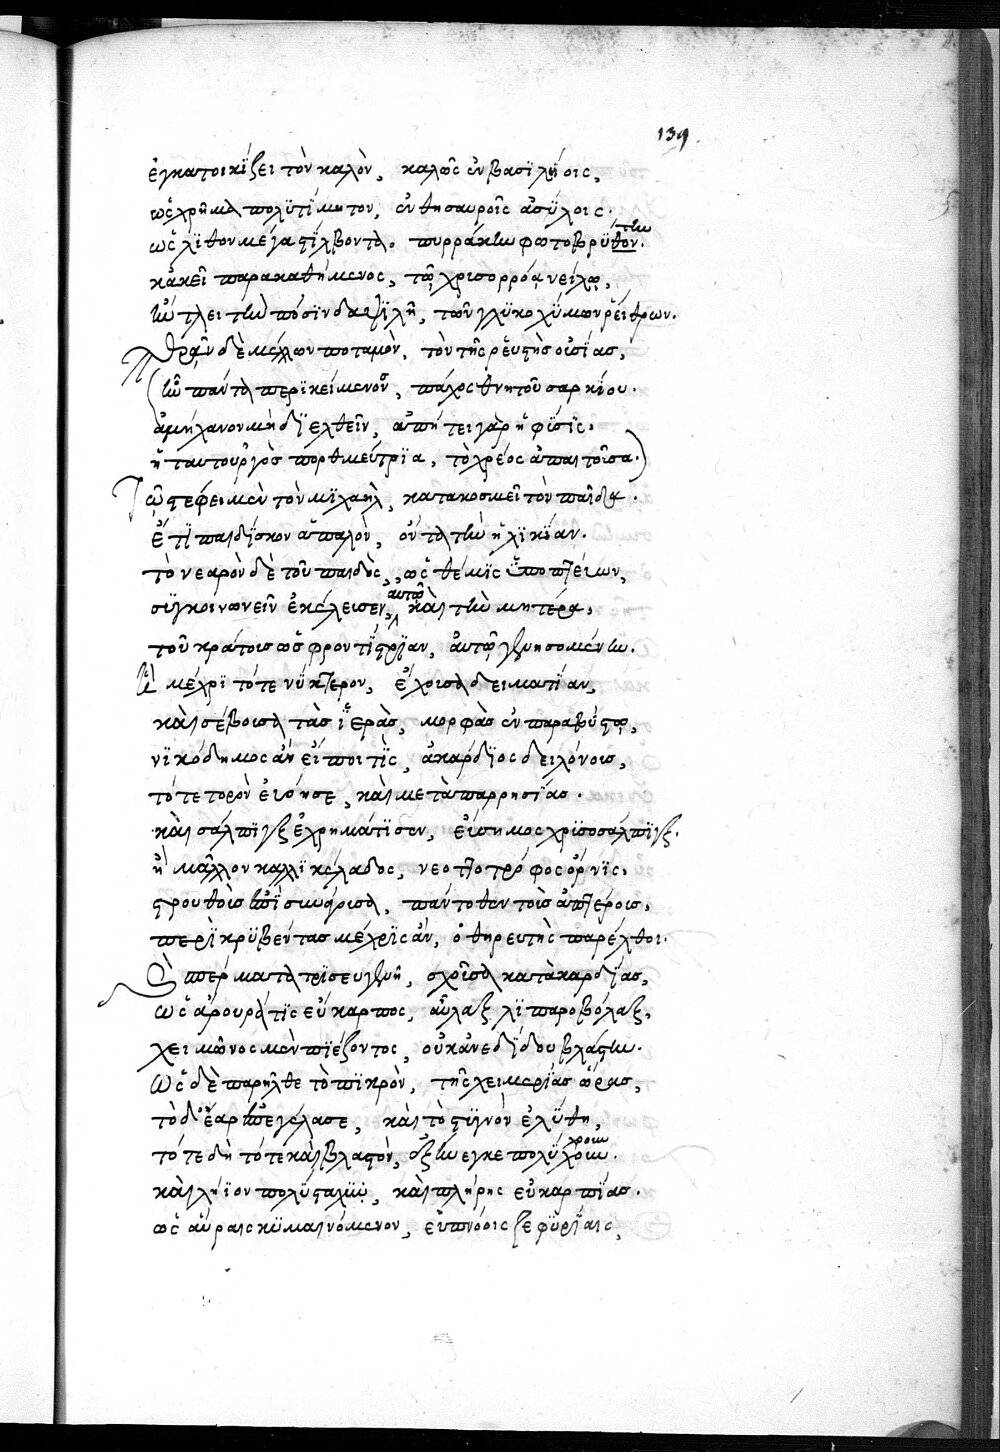 139
ἐγκατοικίζει τὸν καλὸν, καλῶς ἐν βασιλείοις,
ὡς χρῆμα πολϋτίμητον, ἐν θησαυροῖς ἀσύλοις.
τω
ὡς λίθον μέγα στίλβοντα. πυρράκτω φωτοβρϋθον.
κἀκεῖ παρακαθήμενος, τῷ χρισορρόᾳ νείλῳ,
τὴν πόσιν δαψιλῆ, τῶν γλϋκοχϋμων ῥείθρων.
περᾷν δὲ μέλλων ποταμὸν, τὸν τῆς ῥευστῆς οὐσίας,
(ἦν πάντα περικείμενον, πάχος θνητοῦ σαρκίου.
ἀμήχανον μὴ διελθεῖν, ἀπήτει γὰρ ἡ φύσις.
ἡ ταυτουργὸς πορθμεύτρϊα, τὸ χρέος ἀπαιτοῦσα.)
στέφει μὲν τὸν μϊχαὴλ, κατακοσμεῖ τὸν παῖδα.
ἔτι παιδΐσκον ἁπαλὸν, ὄντα τὴν ἡλϊκίαν.
τὸ νεαρὸν δὲ τοῦ παιδὸς, ὡς θέμϊς ὑποπτεύων,
αὐτῷ
σϋγκοινωνεῖν ἐκέλευσεν, καὶ τὴν μητέρα,
τοῦ κράτους ὡς φροντΐστρϊαν, αὐτῷ γενησομένην.
ἡ μέχρϊ τότε νύκτερον, ἔχουσα δειματίαν,
καὶ σέβουσα τὰς ἱερὰς, μορφὰς ἐν παραβύστῳ,
νϊκόδημος ἂν εἴποι τϊς, ἀκάρδϊος δειχόνους,
τότε τορὸν ἐβόησε, καὶ μετὰ παρρησίας.
καὶ σάλπϊγξ ἐχρημάτϊσεν, εὔσημος χρϊσοσάλπϊγξ.
ἢ μᾶλλον καλλϊκέλαδος, νεοττοτρόφος ὄρνϊς.
στρουθοῖς ἐπϊσμυρίσα, πάντοθεν τοῖς ἀπτέροις,
περϊκρϋβέντας μέχρϊς ἂν, ὁ θηρευτὴς παρέλθοι.
σπέρματα τρϊσευγενῆ, σχοῦσα κατὰ καρδίας,
ὡς ἄρουρά τϊς εὔκαρπος, αὖλαξ λϊπαροβόλαξ,
χειμῶνος μὲν πϊέζοντος, οὐκ ἀνεδΐδου βλάστην.
ὡς δὲ παρῆλθε τὸ πϊκρὸν, τῆς χειμερίας ὥρας,
τὸ δ' ἔαρ ἐπεγέλασε, καὶ τὸ στϋγνὸν ἐλύθη,
χρουν
τότε δὴ τότε καὶ βλαστὸν, ἐξήνεγκε πολύχουν.
καὶ λήϊον πολύσταχυν, καὶ πλήρης εὐκαρπίας.
ὡς αὔραις κϋμαινόμενον, εὐπνόοις ζεφϋρΐαις,